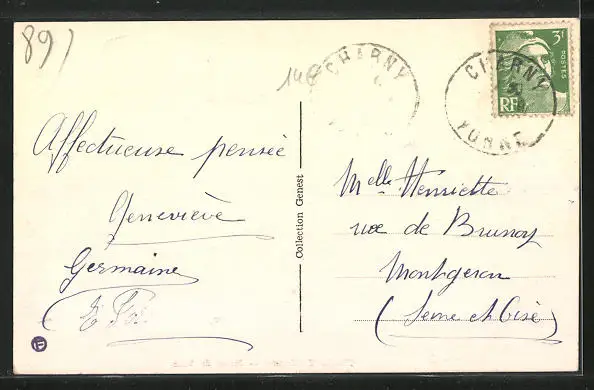 89)
146
CHARNY
CHARNY
YONNE
3f
POSTES
RF
Affectueuse pensée
Geneviève
Germaine
Collection Genest
Melle Henriette
rue de Brunoy
Montgeron
(Seine et Oise)